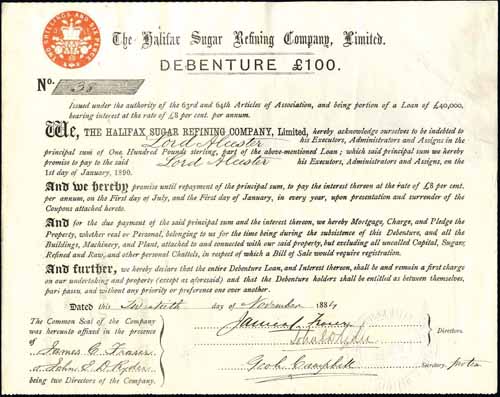 TWO SHILLINGS AND SIX PENCE
The Halifax Sugar Refining Company, Limited.
DEBENTURE £100.
No. 36
Issued under the authority of the 63rd and 64th Articles of Association, and being portion of a Loan of £40,000,
bearing interest at the rate of £8 per cent. per annum.
We, THE HALIFAX SUGAR REFINING COMPANY, Limited, hereby acknowledge ourselves to be indebted to
Lord Alcester his Executors, Administrators and Assigns in the
principal sum of One Hundred Pounds sterling, part of the above-mentioned Loan; which said principal sum we hereby
promise to pay to the said Lord Alcester his Executors, Administrators and Assigns, on the
1st day of January, 1890.
And we hereby promise until repayment of the principal sum, to pay the interest thereon at the rate of £8 per cent.
per annum, on the First day of July, and the First day of January, in every year, upon presentation and surrender of the
Coupons attached hereto.
And for the due payment of the said principal sum and the interest thereon, we hereby Mortgage, Charge, and Pledge the
Property, whether real or Personal, belonging to us for the time being during the subsistence of this Debenture, and all the
Buildings, Machinery, and Plant, attached to and connected with our said property, but excluding all uncalled Capital, Sugar,
Refined and Raw, and other personal Chattels, in respect of which a Bill of Sale would require registration.
And further, we hereby declare that the entire Debenture Loan, and Interest thereon, shall be and remain a first charge
on our undertaking and property (except as aforesaid) and that the Debenture holders shall be entitled as between themselves,
pari passu, and without any priority or preference one over another.
Dated this Twentieth day of November 1884
The Common Seal of the Company
was hereunto affixed in the presence
of
James C. Fraser
& John E. D. Ryder
being two Directors of the Company.
James C. Fraser
Directors.
Geoh Campbell Secretary. pro tem